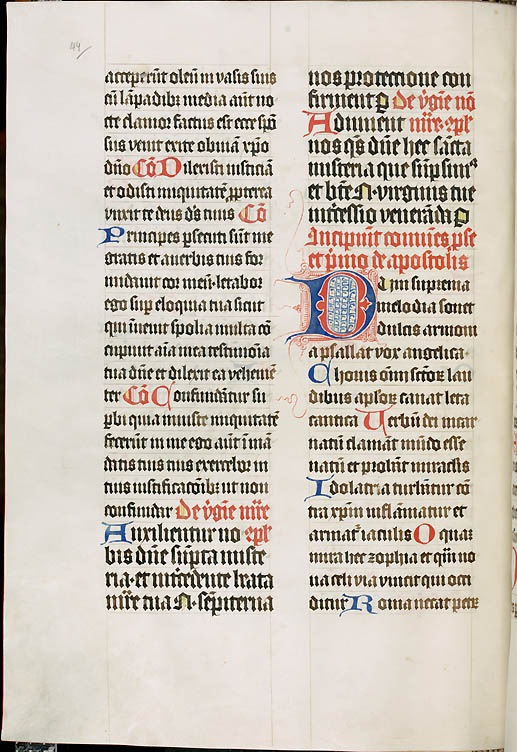 49
acceperūt oleū in vasis suis
cū lāpadibꝫ media aūt no
cte clamor factus est ecce spō
sus venit exite obviā xpo
dn̄o Cō Dilexisti iusticiā
et odisti iniquitatē ꝓpterea
unxit te deus ds̄ tuus Cō
Principes ꝑsecuti sūt me
gratis et a verbis tuis for
midavit cor meū letabor
ego suꝑ eloquia tua sicut
qui īvenit spolia multa cō
cupivit aīa mea testimōia
tua dn̄e et dilexit ea vehemē
ter Cō Confundātur su
ꝑbi quia iniuste iniquitatē
fecerūt in me ego aūt ī mā
datis tuis exercebor in
tuis iustificacōibꝫ ut non
confundar De v̓gīe m̄re
Auxilientur no eple
bis dn̄e sūpta miste
ria et īt̓cedente beata
m̄re tua N sēpiterna
nos protectione con
firment ꝑ De v̓gīe nō
Adiuvent m̄re eple
nos q̄s dn̄e hec sācta
misteria que sūpsimꝰ
et bt̄e N virginis tue
īt̓cessio venerāda ꝑ
Incipiunt cōmūes ꝓse
et p̓mo de apostolis
Celi suprema
melodia sonet
dulcis armoni
a psallat vox angelica
Chorus oīm sctōꝝ lau
dibus aplōꝝ canat leta
cantica Verbū dei incar
natū clamāt mūdo esse
natū et probāt miraclis
Idolatria turbātur cō
tra xp̄m inflāmātur et
armāt̓ iaculis O quā
mira hec zophia et q̄si no
va celi via vincit qui occi
ditur Roma necat petꝝ